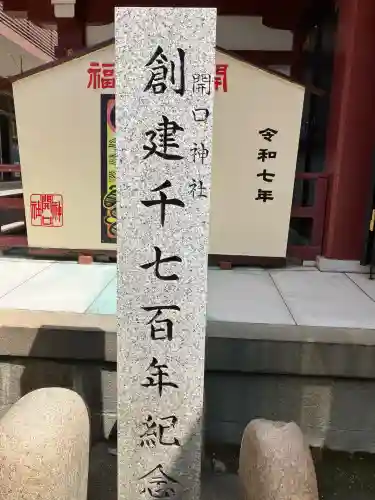 開口神社
創建千七百年紀念
福
開
令和七年
開口神社